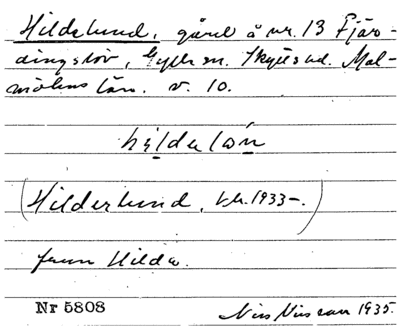 Hildelund, gård å nr. 13 Fjär-
dingslöv, Gylle sn. Skytts hd. Mal-
möhus län. v. 10.
hildelөn
(Hilderlund, tk. 1933–.)
frun Hilda.
Nr 5808
Nils Nilsson 1935.